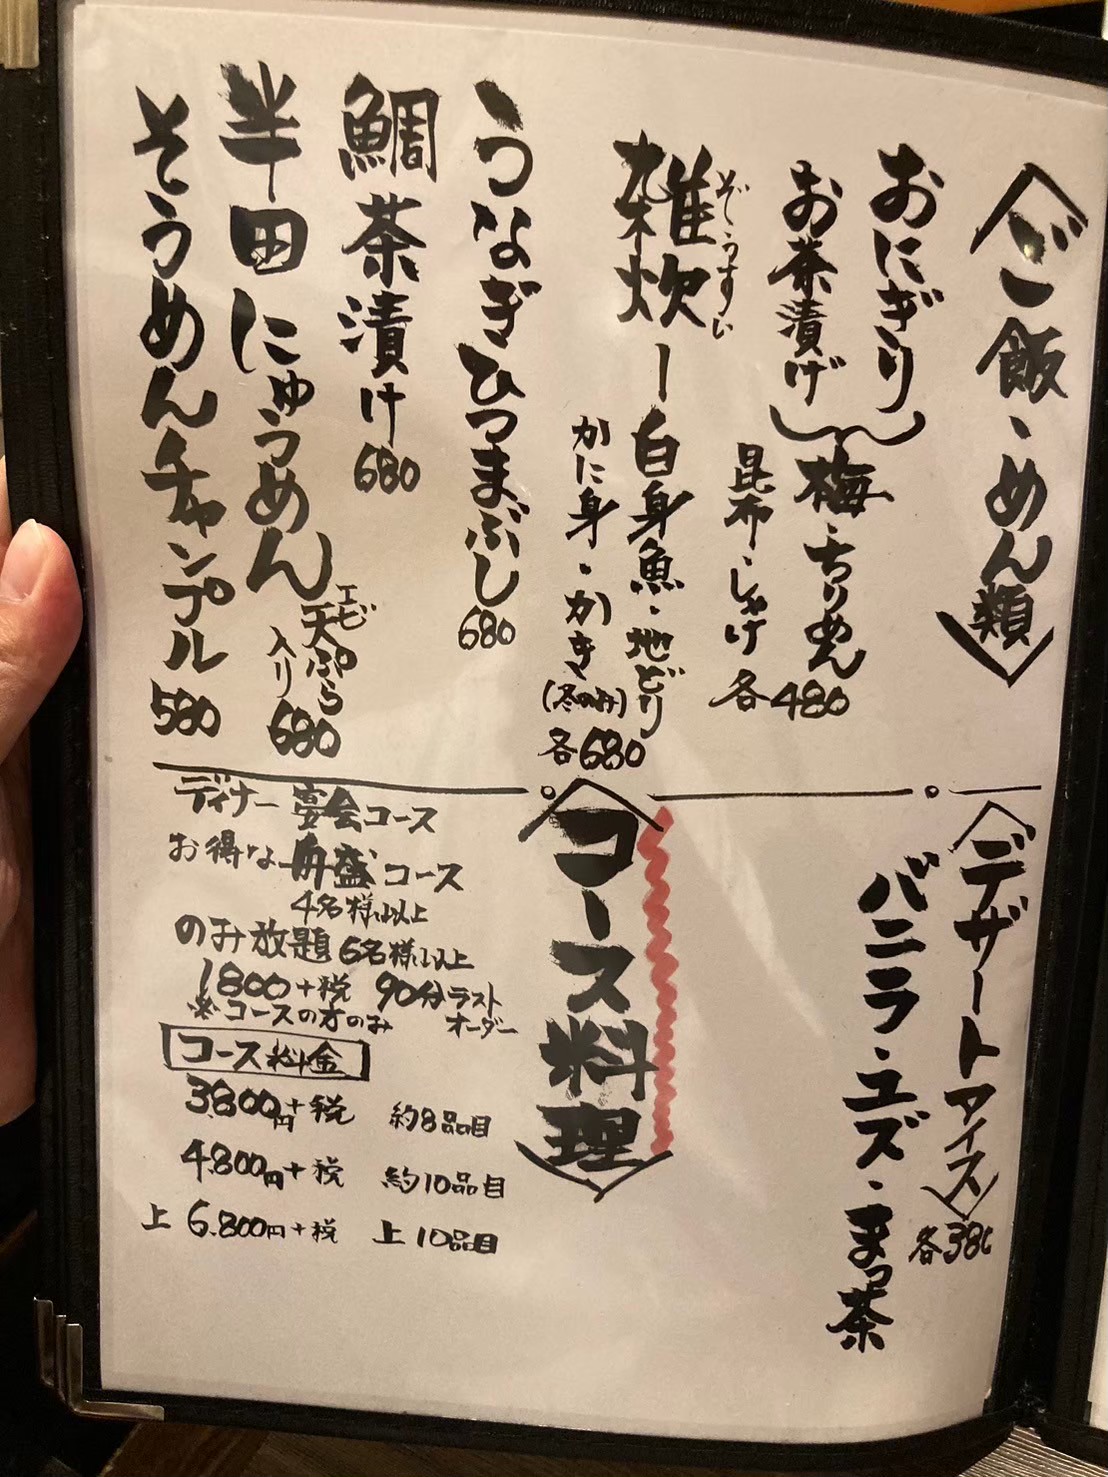 ご飯・めん類
おにぎり
お茶漬け
梅・ちりめん
昆布・しゃけ
各480
雑炊
ぞうすい
白身魚・地どり
かに身・かき
(冬のみ)
各680
うなぎひつまぶし 680
鯛茶漬け 680
半田にゅうめん エビ天ぷら入り 680
そうめんチャンプル 580
デザートアイス 各380
バニラ・ユズ・まっ茶
コース料理
ディナー宴会コース
お得な舟盛コース
4名様以上
のみ放題 6名様以上
1800+税 90分ラスト
オーダー
※コースの方のみ
コース料金
3800円+税 約8品目
4.800円+税 約10品目
上 6.800円+税 上10品目